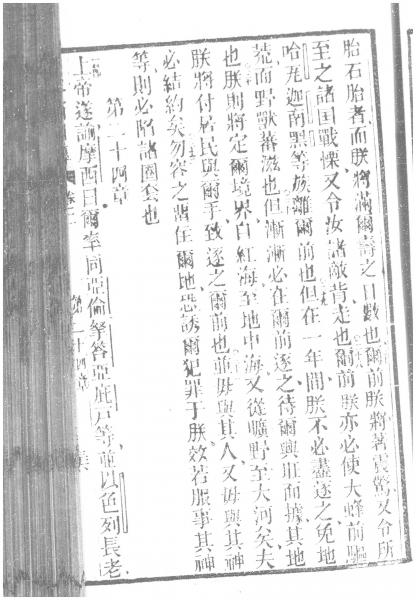 胎石胎者、而朕將滿爾壽之日數也、爾前朕將著震驚、又令所
至之諸囯戰慄、又令汝諸敵背走也、爾前朕亦必使大蜂前驅
哈 迦南黑等族離爾前也、但在一年間、朕不必盡逐之、免地
荒而野獸蕃滋也、但漸漸必在爾前逐之、待爾興旺而據其地
也、朕則將定爾境界、自紅海至地中海、又從曠野至大河矣、夫
朕將付居民與爾手、致逐之爾前也、並毋與其人、又毋與其神
必結約矣、勿容之畱住爾地、恐誘爾犯罪于朕、效若服事其神
等、則必陷諸圈套也
第二十四章
上帝遂諭摩西曰、爾率同亞倫 答亞庇戸等、並以色列長老
第二十四章